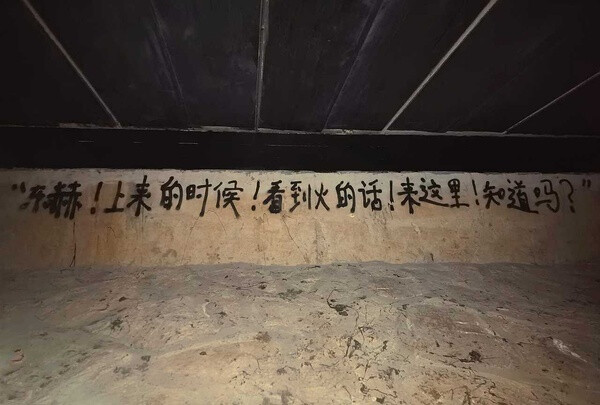 "东赫！上来的时候！看到火的话！来这里！知道吗？"